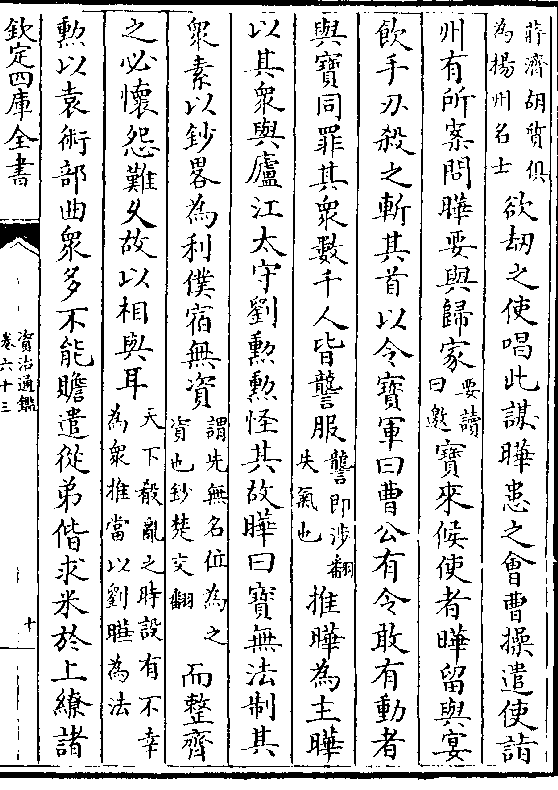 蔣濟胡質俱
為揚州名士
欲劫之使唱此謀曄患之會曹操遣使詣
州有所案問曄要與歸家
要讀
曰邀
寶來候使者曄留與宴
飲手刃殺之斬其首以令寶軍曰曹公有令敢有動者
與寶同罪其衆數千人皆讋服
讋即涉翻
失氣也
推曄為主曄
以其衆與廬江太守劉勲勲怪其故曄曰寶無法制其
衆素以鈔畧為利僕宿無資
謂先無名位為之
資也鈔楚交翻
而整齊
之必懷怨難乆故以相與耳
天下殽亂之時設有不幸
為衆推當以劉曄為法
勲以袁術部曲衆多不能贍遣從弟偕求米於上繚諸
欽定四庫全書
資治通鑑
卷六十三
十